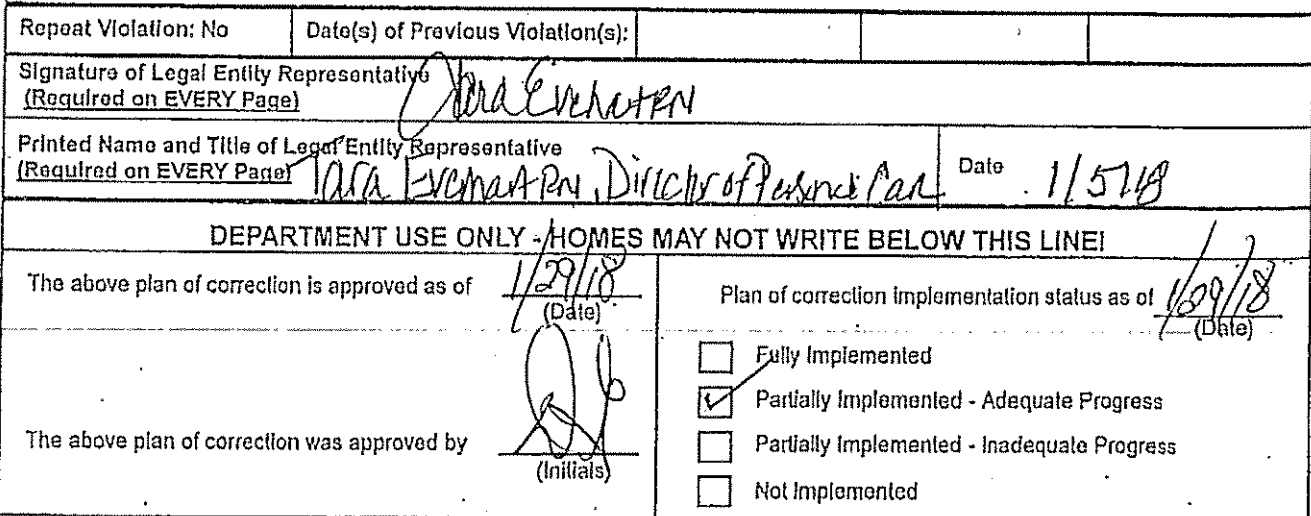 Repeat Violation: No Date(s) of Previous Violation(s):
Signature of Legal Entity Representative
(Required on EVERY Page) Tara Everhart RN
Printed Name and Title of Legal Entity Representative
(Required on EVERY Page) Tara Everhart RN, Director of Personal Care Date 1/5/18
DEPARTMENT USE ONLY - HOMES MAY NOT WRITE BELOW THIS LINE!
The above plan of correction is approved as of 1/29/18
(Date)
Plan of correction implementation status as of 1/29/18
(Date)
Fully Implemented
Partially Implemented - Adequate Progress
The above plan of correction was approved by
(Initials)
Partially Implemented - Inadequate Progress
Not Implemented